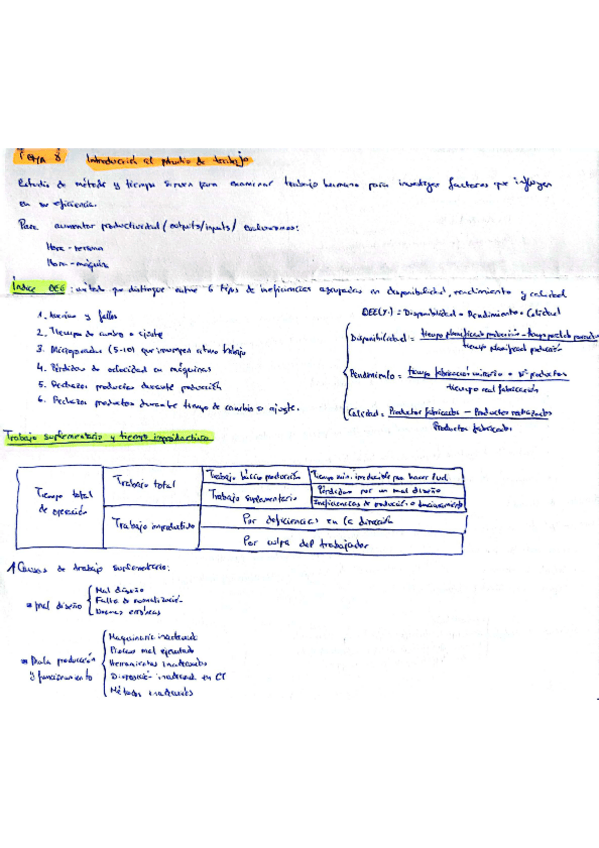 Tema 8 Introducción al estudio de trabajo
Estudio de método y tiempo sirven para examinar trabajo humano para investigar factores que influyen
en su eficiencia.
Para aumentar productividad (outputs/inputs) evaluaremos:
Hora-persona
Hora-máquina
Índice OEE: método que distingue entre 6 tipos de ineficiencias agrupadas en disponibilidad, rendimiento y calidad
OEE(%) = Disponibilidad · Rendimiento · Calidad
1. Averías y fallos
2. Tiempo de cambio o ajuste
3. Microparadas (5-10) que interrumpen ritmo trabajo
4. Pérdidas de velocidad en máquinas
5. Rechazar productos durante producción
6. Rechazar productos durante tiempo de cambio o ajuste.
Disponibilidad = tiempo planificado producción - tiempo perdido paradas
tiempo planificado producción
Rendimiento = tiempo fabricación unitario · Nº productos
tiempo real fabricación
Calidad = Productos fabricados - Productos rechazados
Productos fabricados
Trabajo suplementario y tiempo improductivo
Tiempo total de operación
Trabajo total
Trabajo básico producción
Tiempo min. irreducible para hacer
Trabajo suplementario
Pérdidas por un mal diseño
Ineficiencias de producción o funcionamiento
Trabajo improductivo
Por deficiencias en la dirección
Por culpa del trabajador
Causas de trabajo suplementario:
mal diseño
Mal diseño
Falta de normalización
Normas erróneas
Mala producción y funcionamiento
Maquinaria inadecuada
Proceso mal ejecutado
Herramientas inadecuadas
Disposición inadecuada en CT
Métodos inadecuados